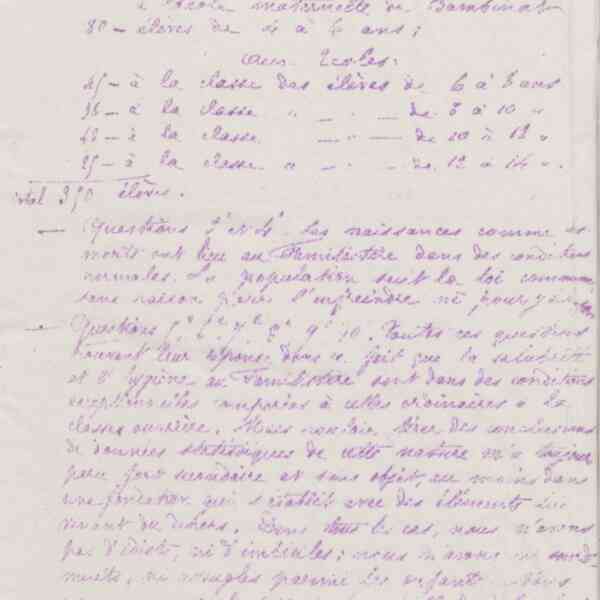 École maternelle de Bambinat
80 – élèves de 4 à 6 ans;
Aux Écoles:
à la classe des élèves de 6 à 8 ans
à la classe " – " – de 8 à 10 "
à la classe – " – de 10 à 12 "
à la classe " – " – de 12 à 14 ".
total élèves.
– Questions et Les naissances comme les
morts ont lieu au Familistère dans des conditions
normales. La population suit la loi commune
sans raison pour l'enfreindre ni pour y
– Questions 9e 10. Toutes ces questions
trouvent leur réponse dans ce fait que la salubrité
et l'hygiène au Familistère sont dans des conditions
exceptionnelles comparées à celles ordinaires à la
classe ouvrière. Mais vouloir tirer des conclusions
de données statistiques de cette nature m'a toujours
paru fort secondaire et sans objet, au moins dans
une fondation qui s'établit avec des éléments lui
venant du dehors. Dans tous les cas, nous n'avons
pas d'idiots, ni d'imbéciles; nous n'avons ni sourds
muets, ni aveugles parmi les enfants. Nous